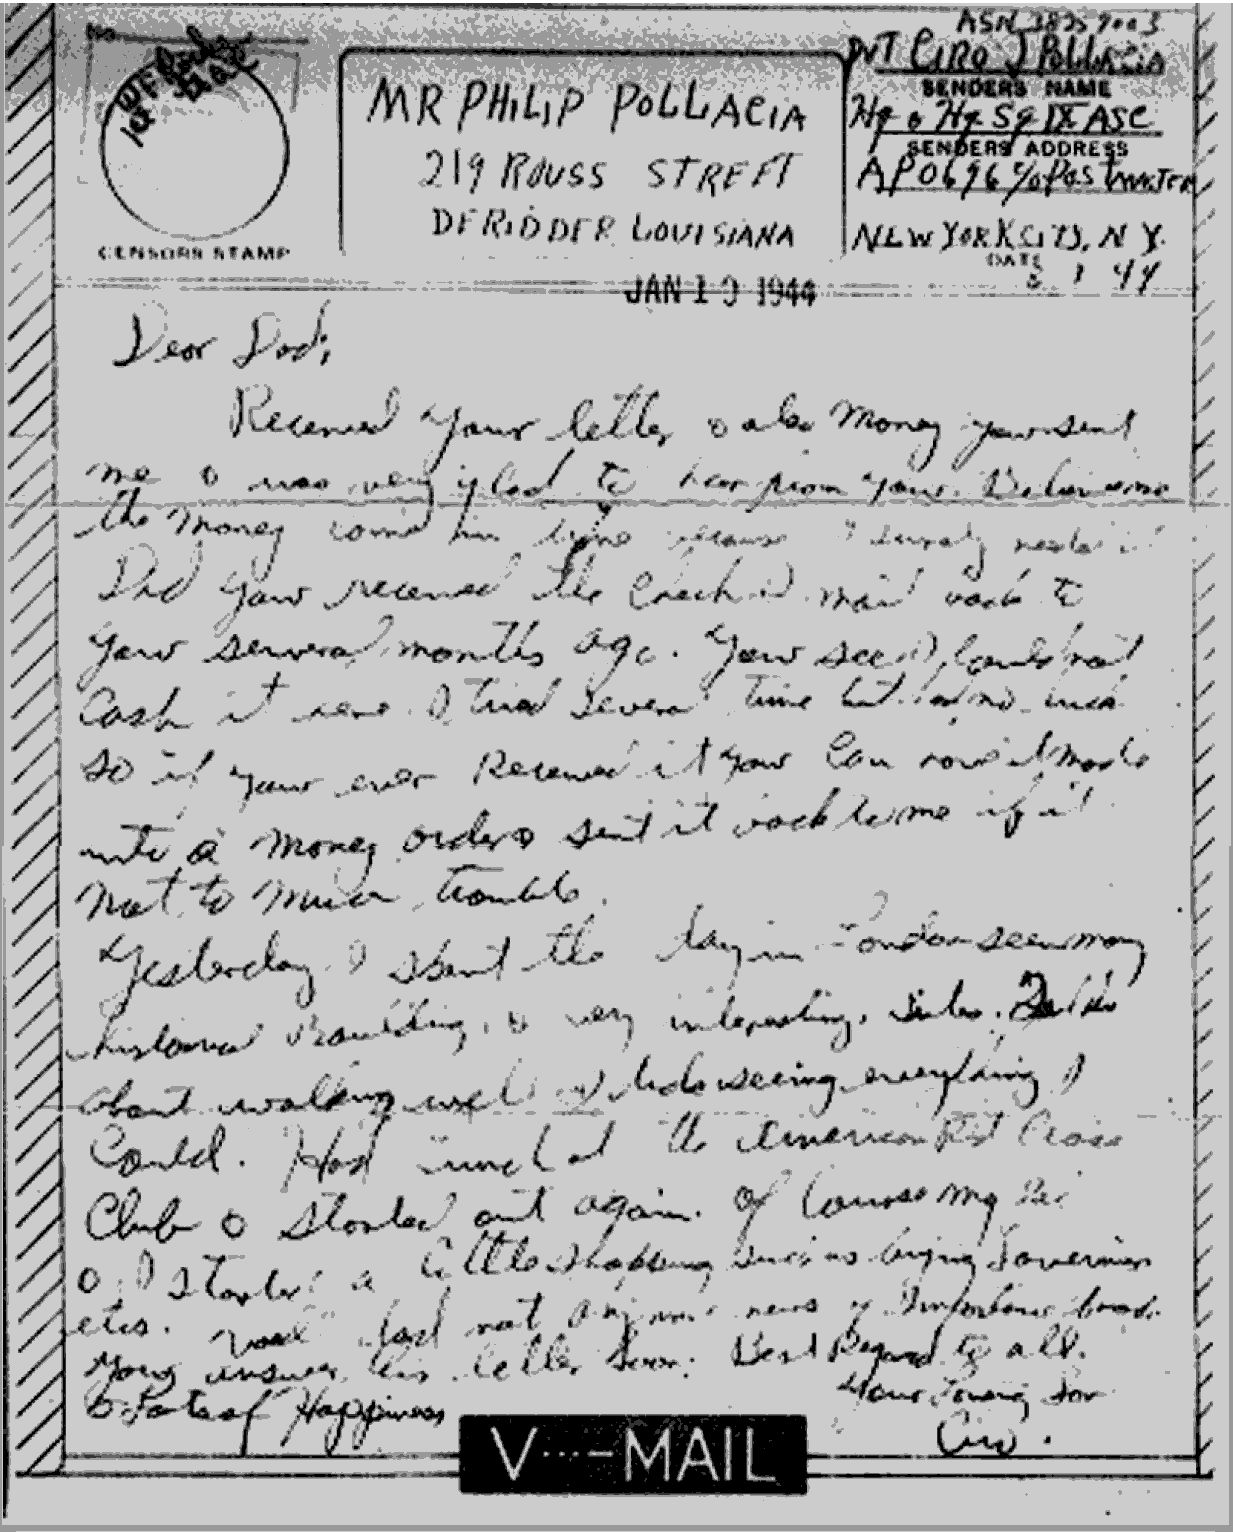 No.
CENSORS STAMP
MR PHILIP POLLACIA
219 ROUSS STREET
DERIDDER LOUISIANA
PVT CIRO J POLLACIA
SENDERS NAME
Hq o Hq Sq IX ASC
SENDERS ADDRESS
APO 696 c/o Post
NEW YORK CITY, N Y.
DATE
44
JAN 1 1944
Dear Dad,
Received your letter o also money your sent
me o was very glad to hear from your. Believe me
the money came in time because I surely needed it
Did your received the check I mail back to
your serveral months ago. Your see I could not
Cash it here I tried several time but no luck
so if your ever Received it your can have it made
into a money order o sent it back to me if it
not to much trouble.
Yesterday I spent the day in London seen many
historical Building, o very interesting.
about walking well I seeing everything I
Could. Had lunch at the American Red Cross
Club o started out again. Of course my
o I started a little shopping such as buying
etcs. Well Dad not any more news of Importance
answer this letter soon. Best Regard to all.
o Lots of Happiness
Your Loving Son
Ciro.
V···—MAIL